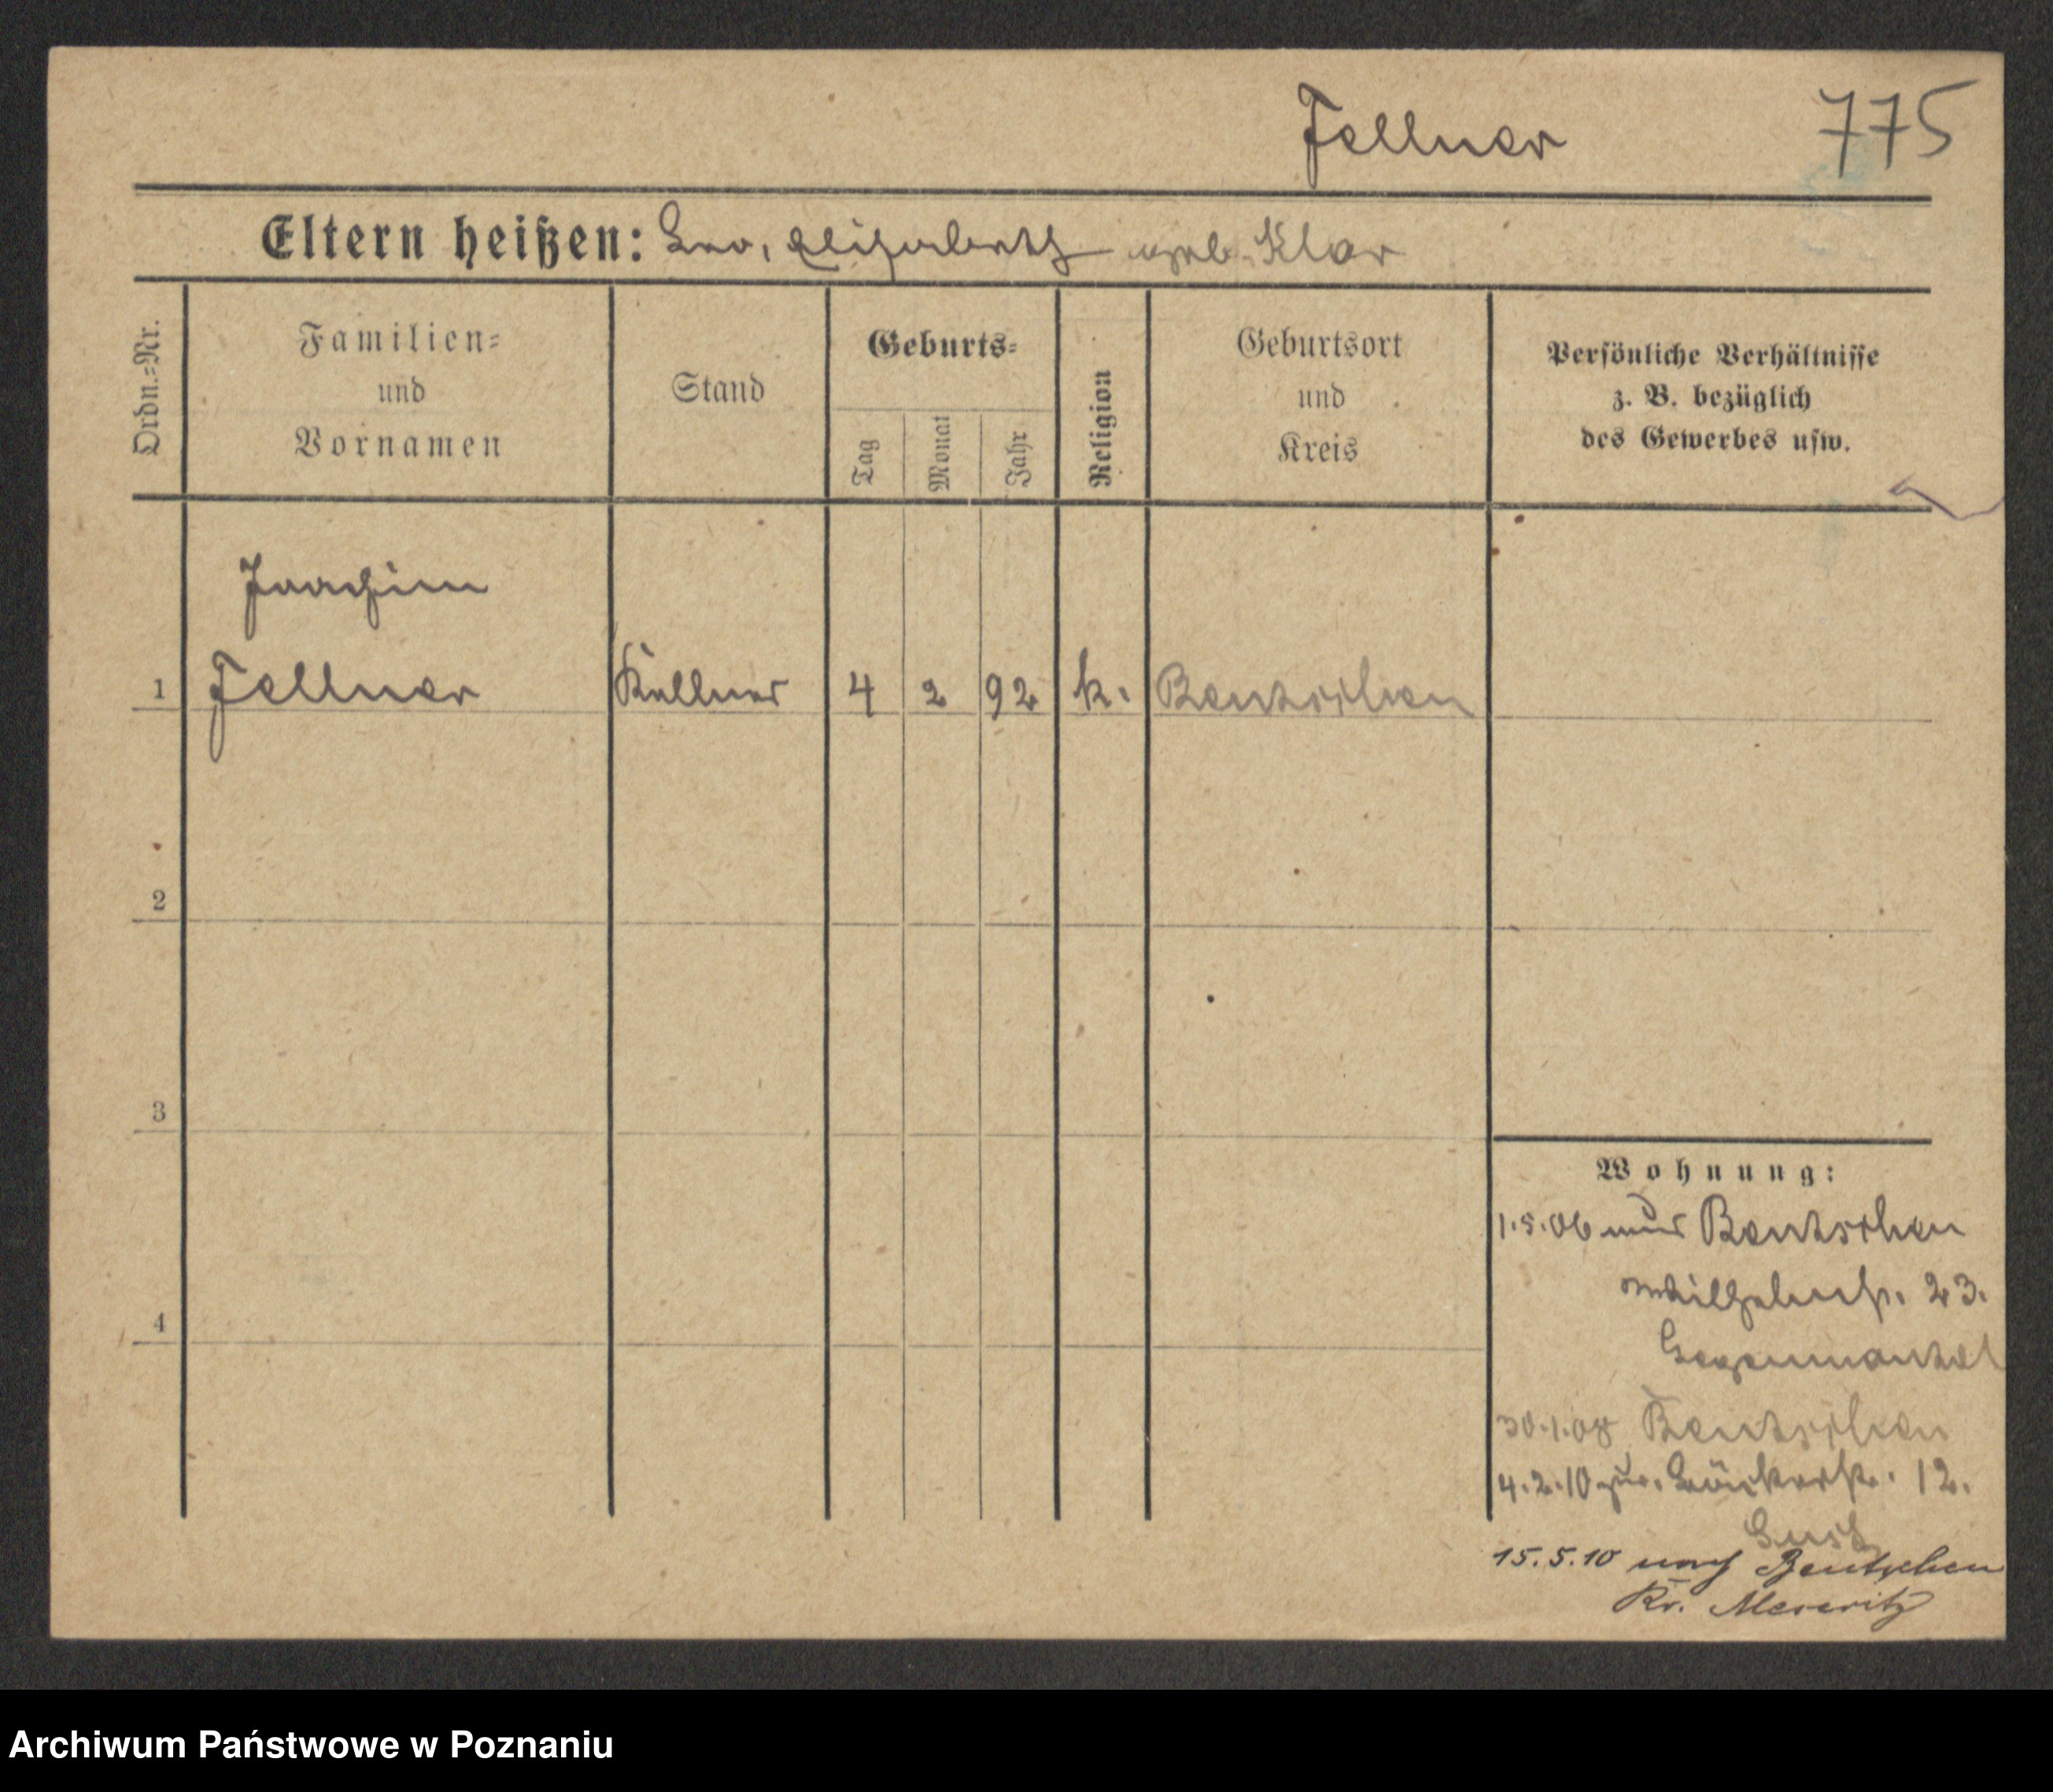 Fellner 775
Eltern heißen: Leo, Elisabeth geb. Klar
Ordn.-Nr.
Familien-
und
Vornamen
Stand
Geburts-
Tag
Monat
Jahr
Religion
Geburtsort
und
Kreis
Persönliche Verhältnisse
z. B. bezüglich
des Gewerbes usw.
Joachim
1 Fellner Kellner 4 2 92 k. Bentschen
2
3
4
Wohnung:
1.5.06 aus Bentschen
Wilhelmstr. 23.
30.1.08 Bentschen
4.2.10 zur. Bäckerstr. 12.
15.5.10 nach Bentschen
Kr. Meseritz
Archiwum Państwowe w Poznaniu